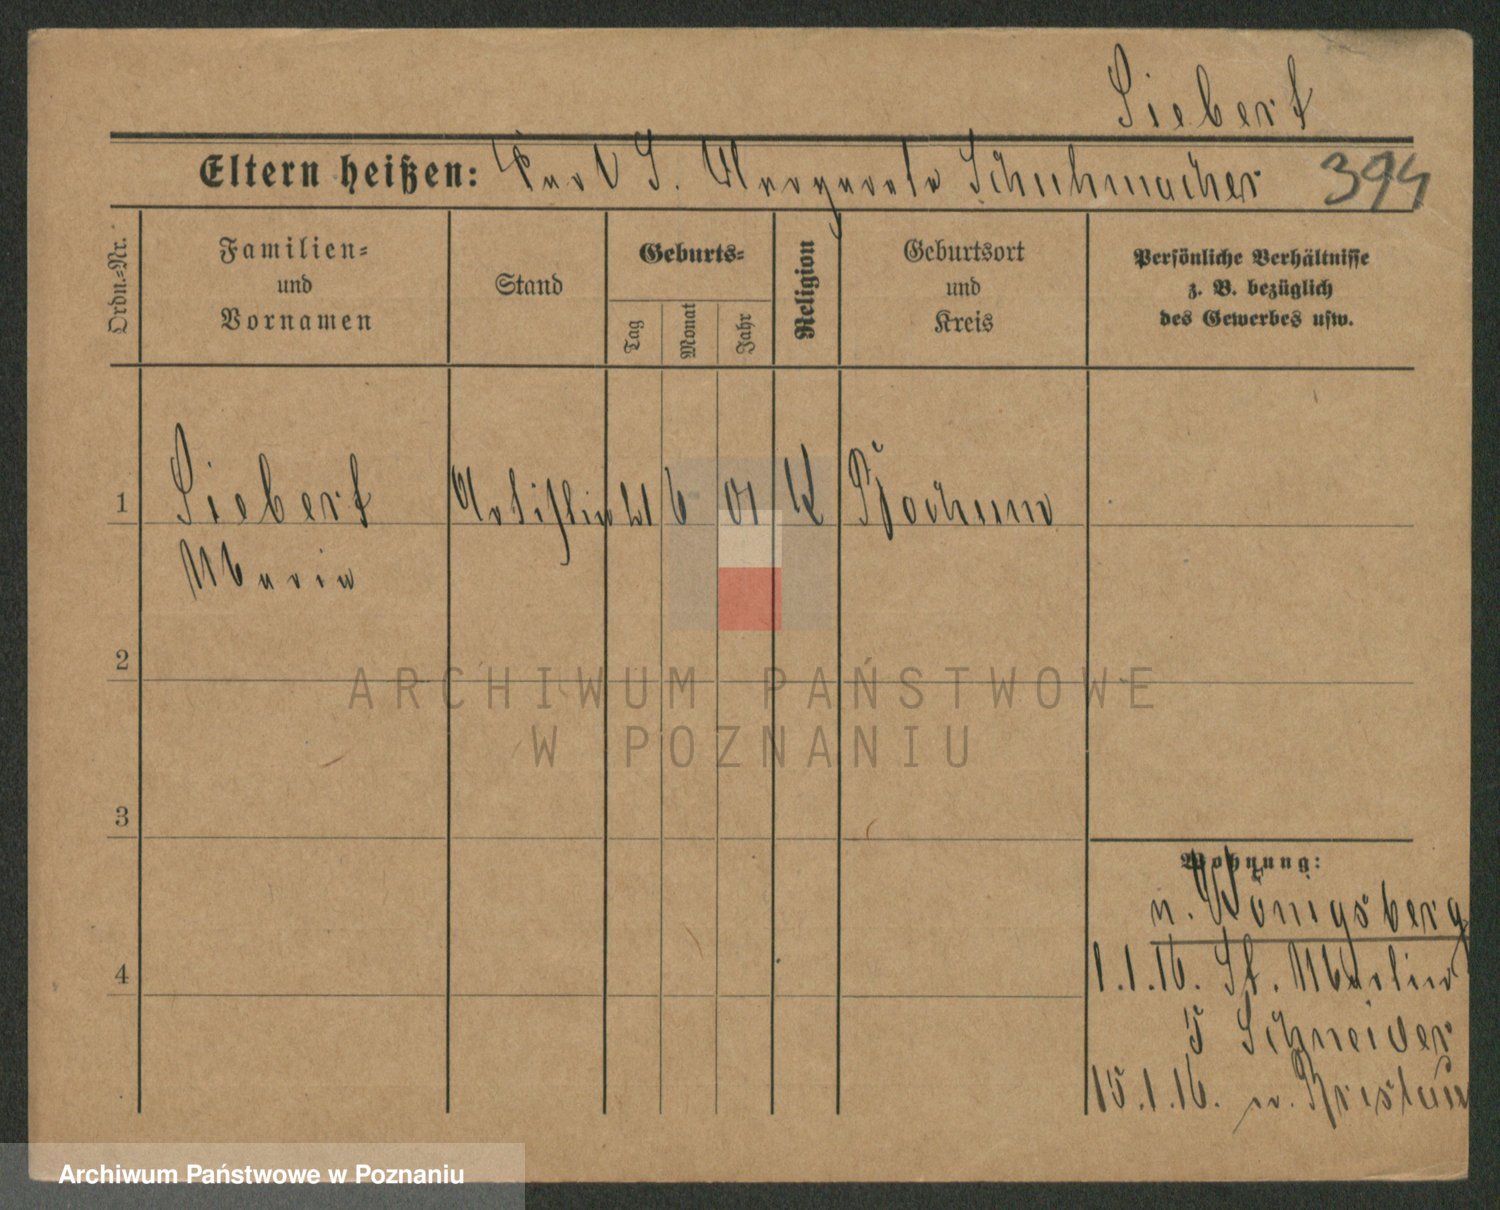 Siebert
Eltern heißen: Karl S. Margarete Schuhmacher 394
Ordn.-Nr.
Familien-
und
Vornamen
Stand
Geburts-
Tag
Monat
Jahr
Religion
Geburtsort
und
Kreis
Persönliche Verhältnisse
z. B. bezüglich
des Gewerbes usw.
1 Siebert Artistin 21 6 01 K Bochum
Maria
2
ARCHIWUM PAŃSTWOWE
W POZNANIU
3
Wohnung:
n. Königsberg
4
1.1.16. St. Martin
5 Schneider
15.1.16. n. Breslau
Archiwum Państwowe w Poznaniu